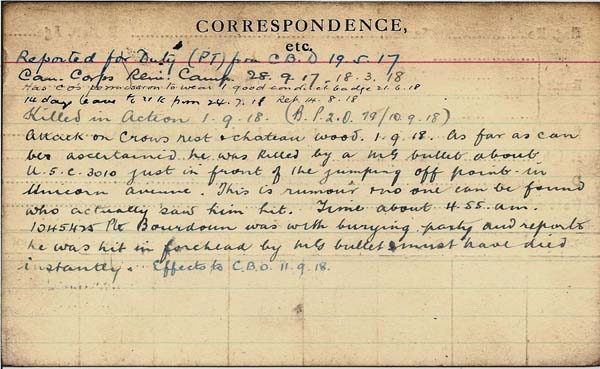 CORRESPONDENCE,
etc.
Reported for Duty (PT) from C.B.D 19.5.17
Can. Corps Rein. Camp. 28.9.17. 18.3.18
Has C.O's permission to wear 1 good conduct badge 21.6.18
14 day leave to U.K from 24.7.18 Rep. 14.8.18
Killed in Action 1.9.18. (B.P.2.O. 79/10.9.18)
Attack on Crows nest & chateau wood. 1.9.18. As far as can
be ascertained he was killed by a MG bullet about
U.5.C.3010 just in front of the jumping off point in
Unicorn avenue. This is rumour & no one can be found
who actually saw him hit. Time about 4.55 am.
1045425 Pte Bourdoun was with burying party and reports
he was hit in forehead by MG bullet & must have died
instantly. Effects to C.B.O. 11.9.18.